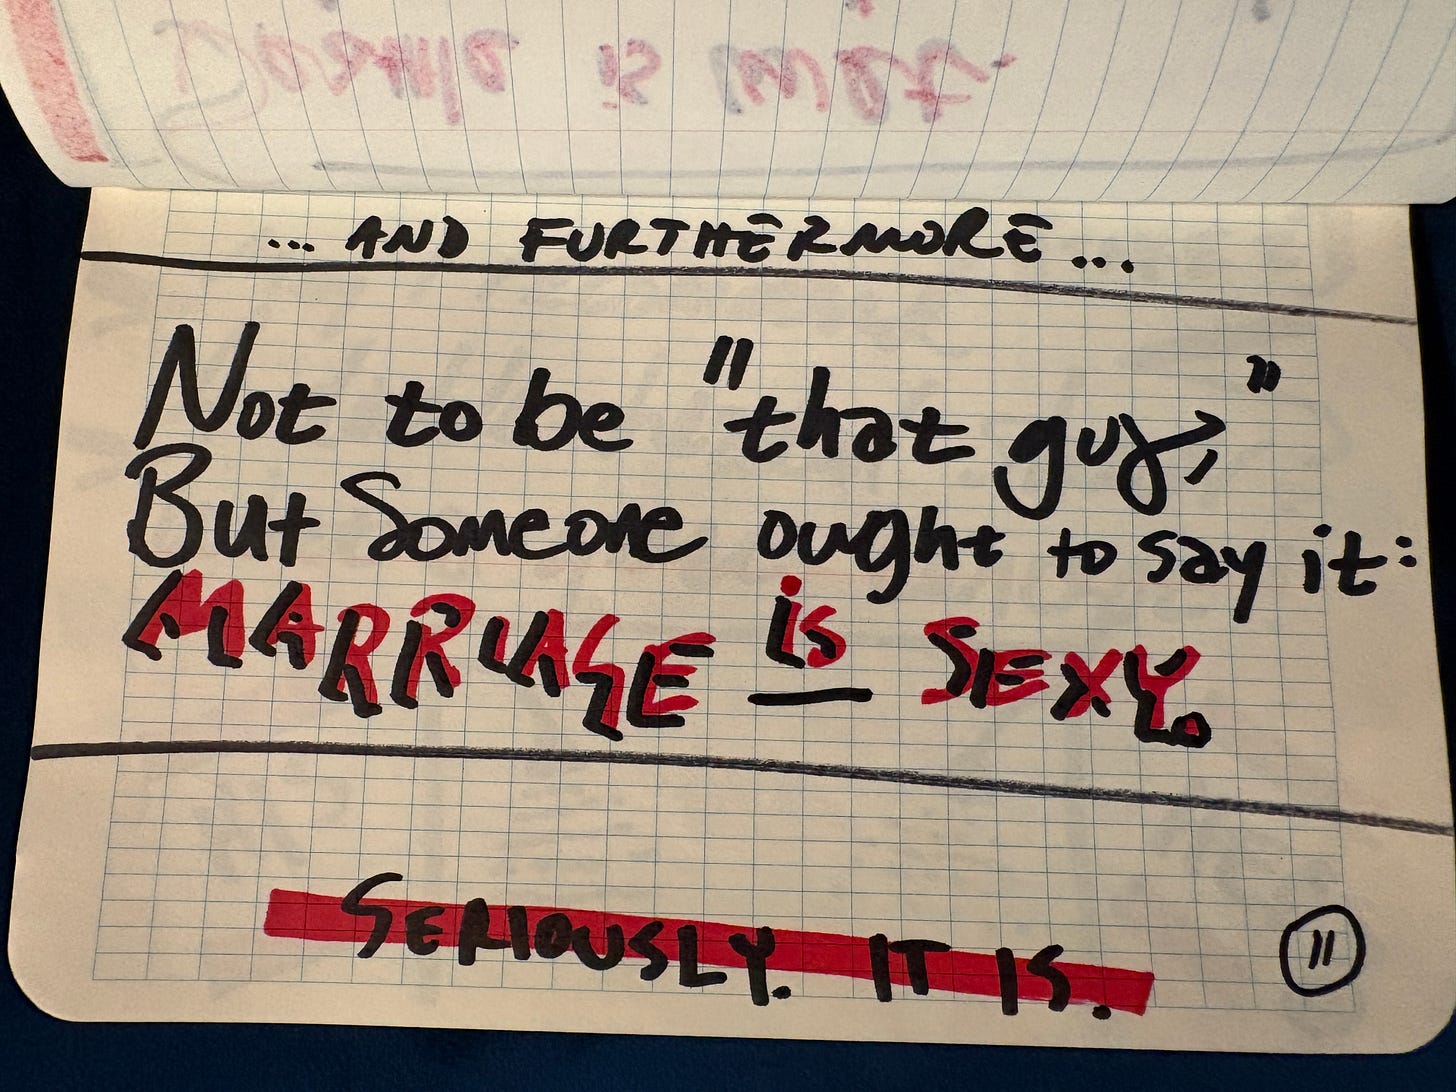 is
... AND FURTHERMORE...
Not to be "that guy,"
But Someone ought to say it:
MARRIAGE is SEXY.
SERIOUSLY. IT IS.
11